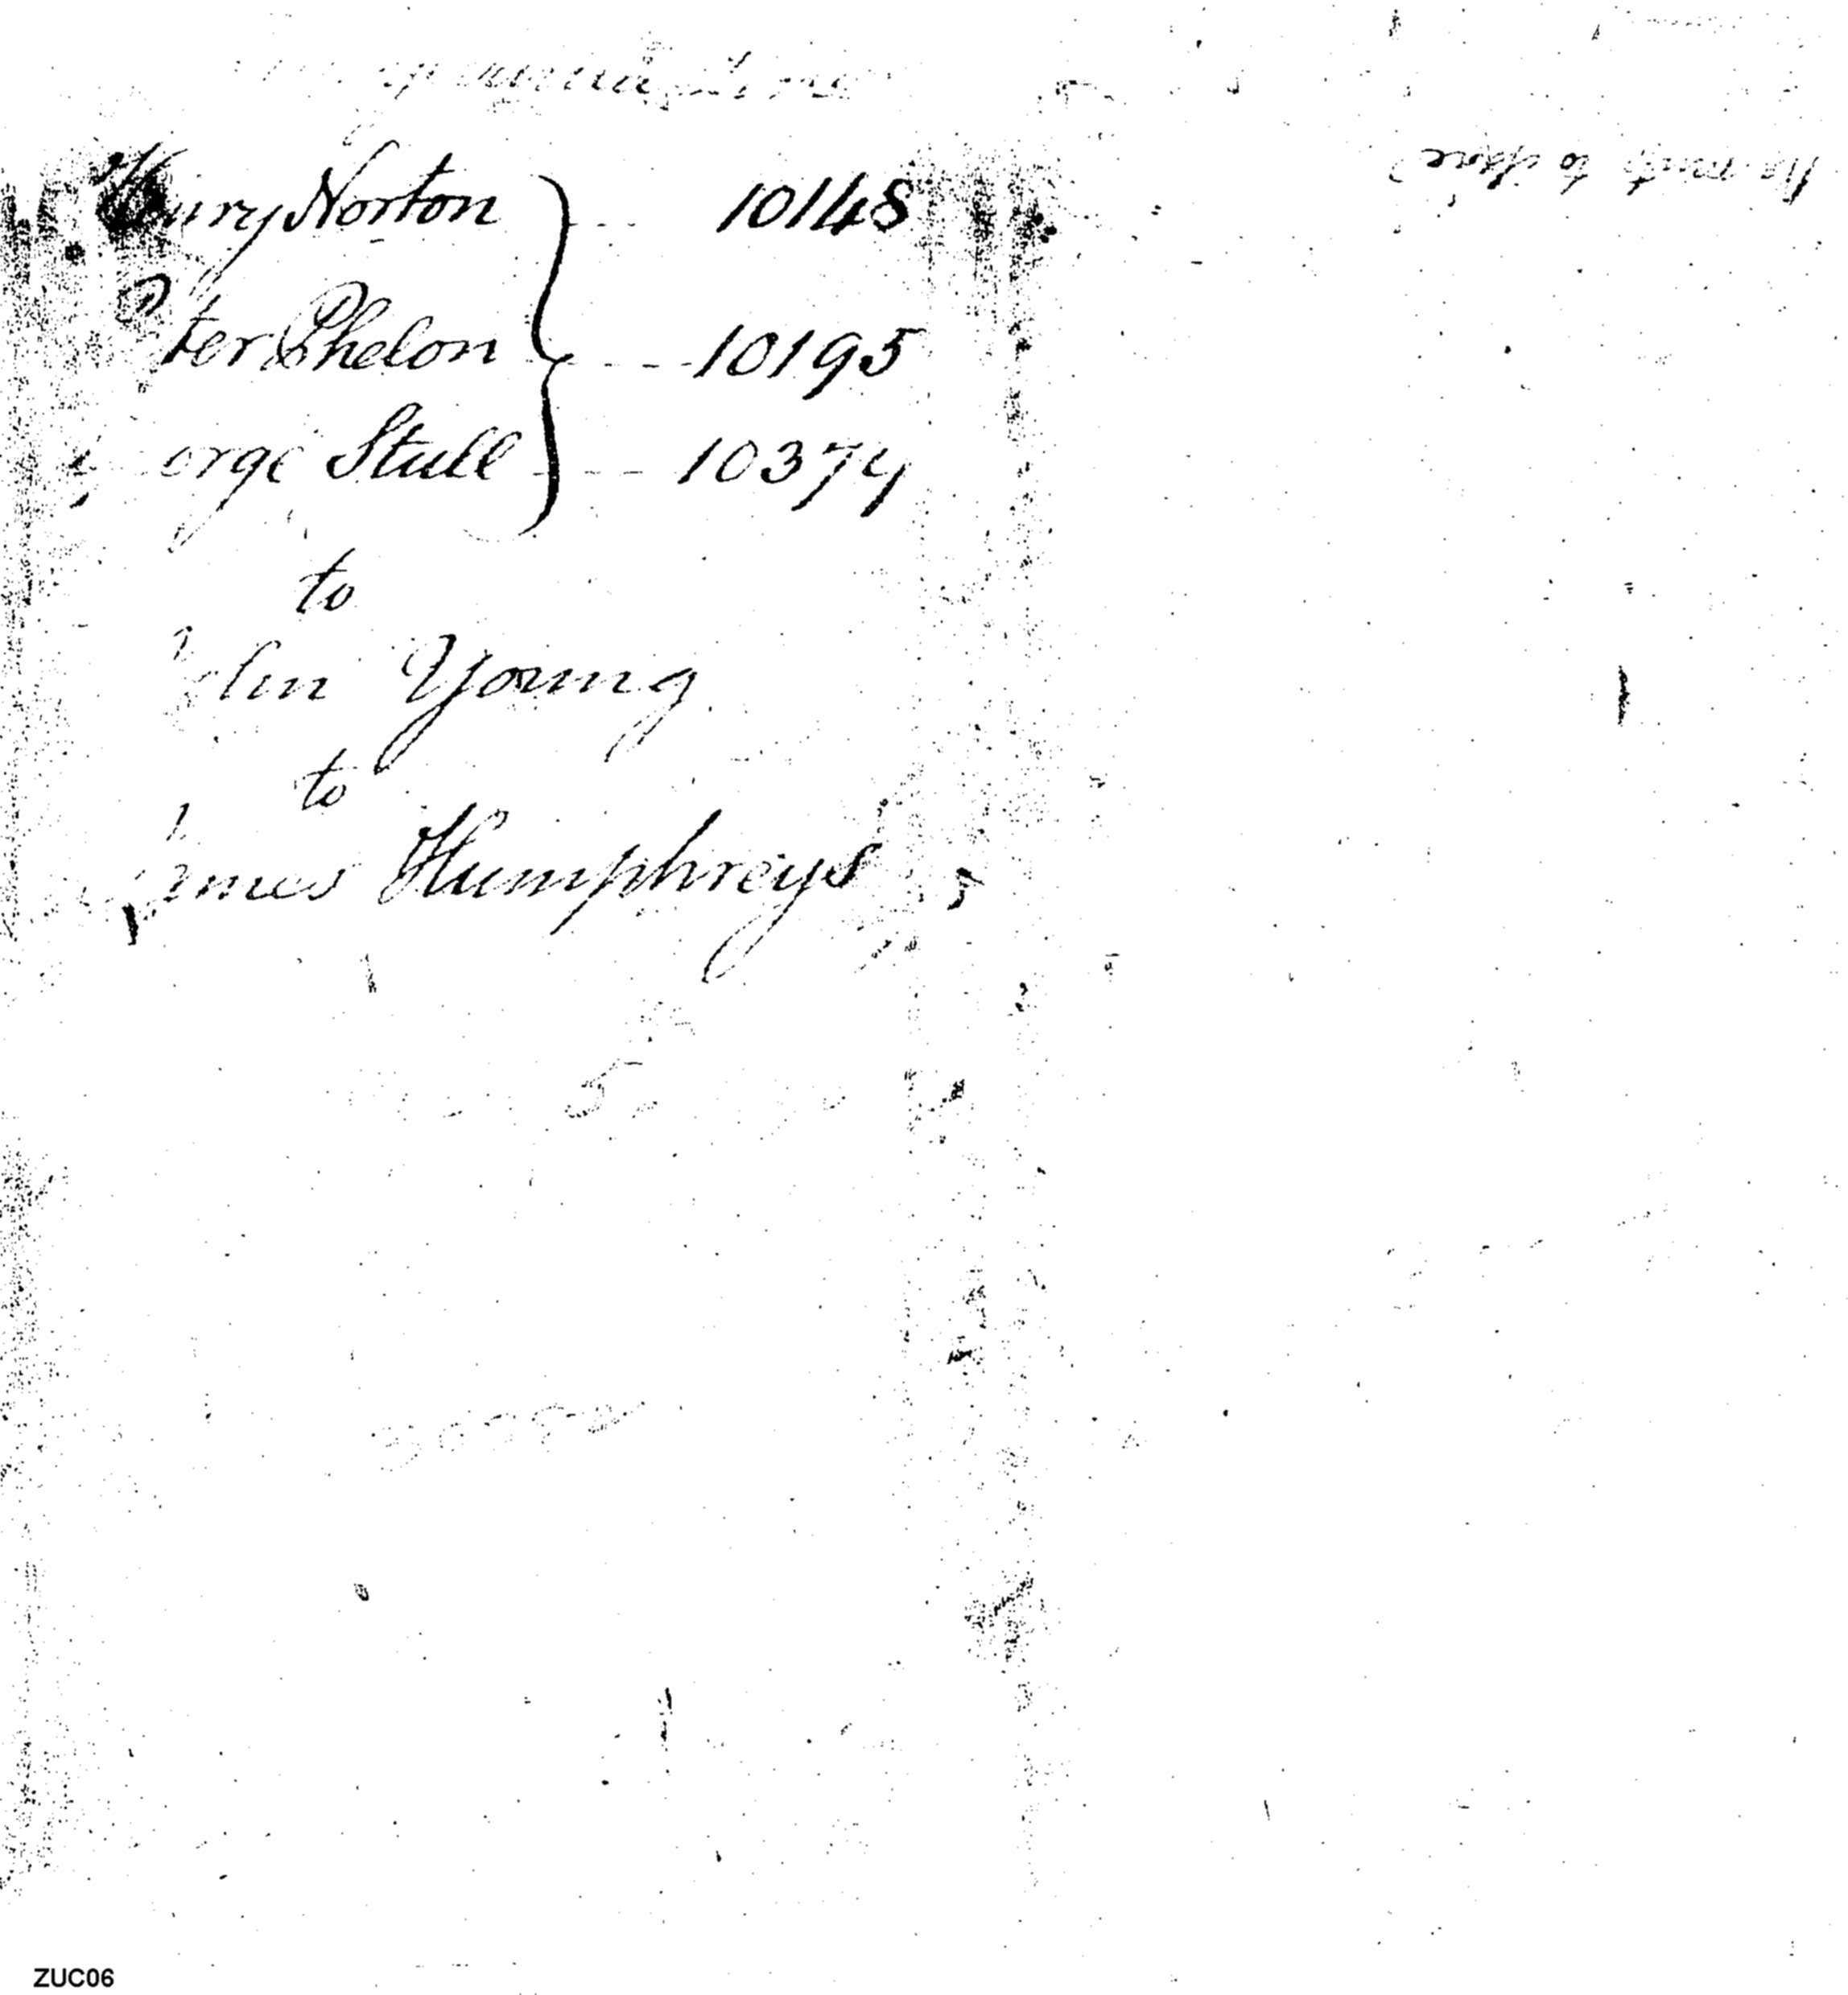 Henry Norton -- 10148
Peter Phelon --- 10195
George Stull --- 10374
to
John Young
to
James Humphreys
ZUC06